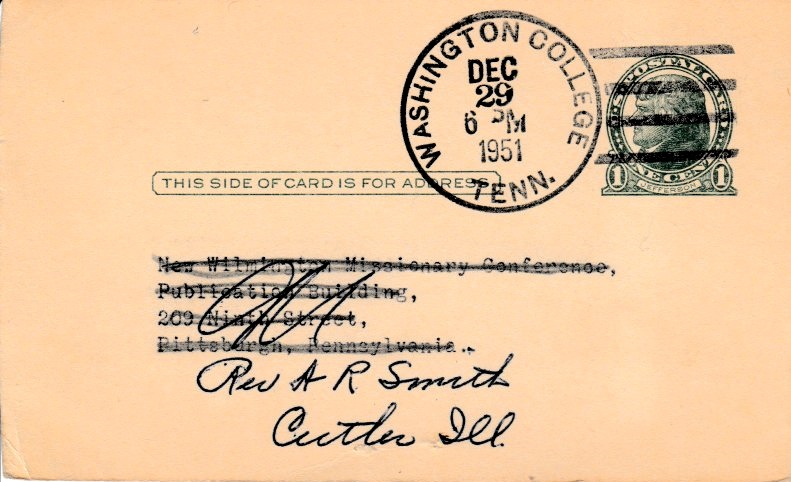 WASHINGTON COLLEGE
DEC
29
6 PM
1951
TENN.
POSTAL CARD
ONE CENT
1 JEFFERSON 1
THIS SIDE OF CARD IS FOR ADDRESS
New Wilmington Missionary Conference,
Publication Building,
209 Ninth Street,
Pittsburgh, Pennsylvania.
Rev A R Smith
Cutler Ill.